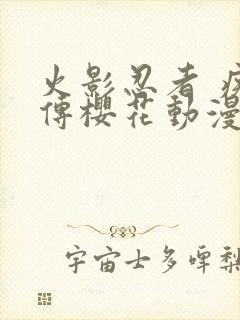 火影忍者 疾
傳櫻花動漫
宇宙士多啤梨